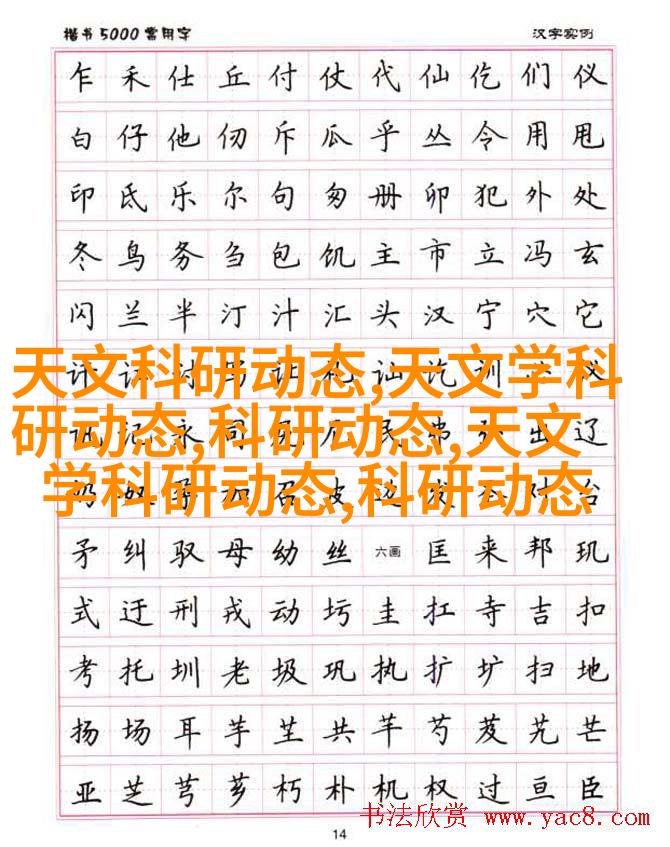 楷书5000常用字 汉字实例
乍 禾 仕 丘 付 仗 代 仙 仡 们 仪
白 仔 他 仞 斥 瓜 乎 丛 令 用 甩
印 氐 乐 尔 句 匆 册 卯 犯 外 处
冬 鸟 务 刍 包 饥 主 市 立 冯 玄
闪 兰 半 汀 汁 汇 头 汉 宁 穴 它
天文科研动态,天文学科
研动态,科研动态,天文
学科研动态,科研动态
讨 写 让 礼 讪 讫 训 议
记 永 司 民 弗 出 辽
奶 奴 孕 加 召 皮 边 发 台
矛 纠 驭 母 幼 丝 六画 匡 来 邦 玑
式 迂 刑 戎 动 圬 圭 扛 寺 吉 扣
考 托 圳 老 圾 巩 执 扩 圹 扫 地
扬 场 耳 芋 芏 共 芊 芍 芨 艽 芒
亚 芝 芎 芗 朽 朴 机 权 过 亘 臣
书法欣赏 www.yac8.com
14